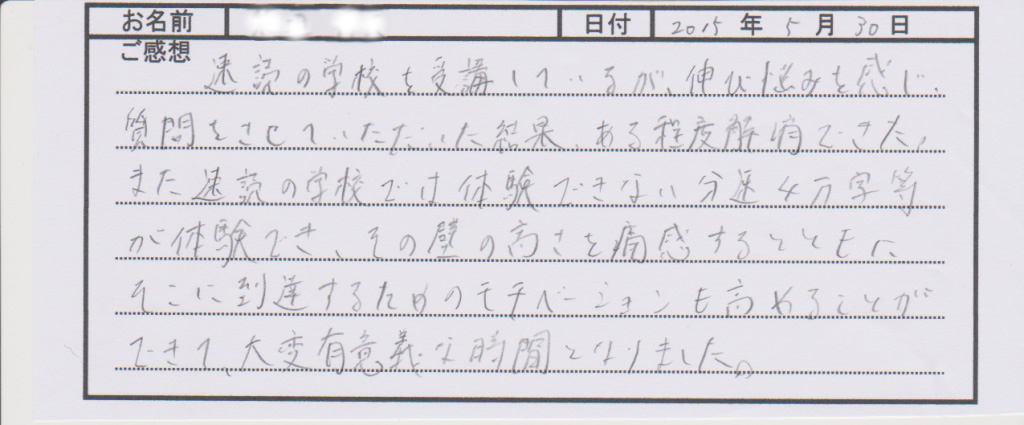 お名前 日付 2015 年 5 月 30 日
ご感想
速読の学校を受講しているが、伸び悩みを感じ、
質問をさせていただいた結果、ある程度解消できた。
また速読の学校では体験できない分速4万字等
が体験でき、その壁の高さを痛感するとともに
そこに到達するためのモチベーションも高めることが
できて、大変有意義な時間となりました。